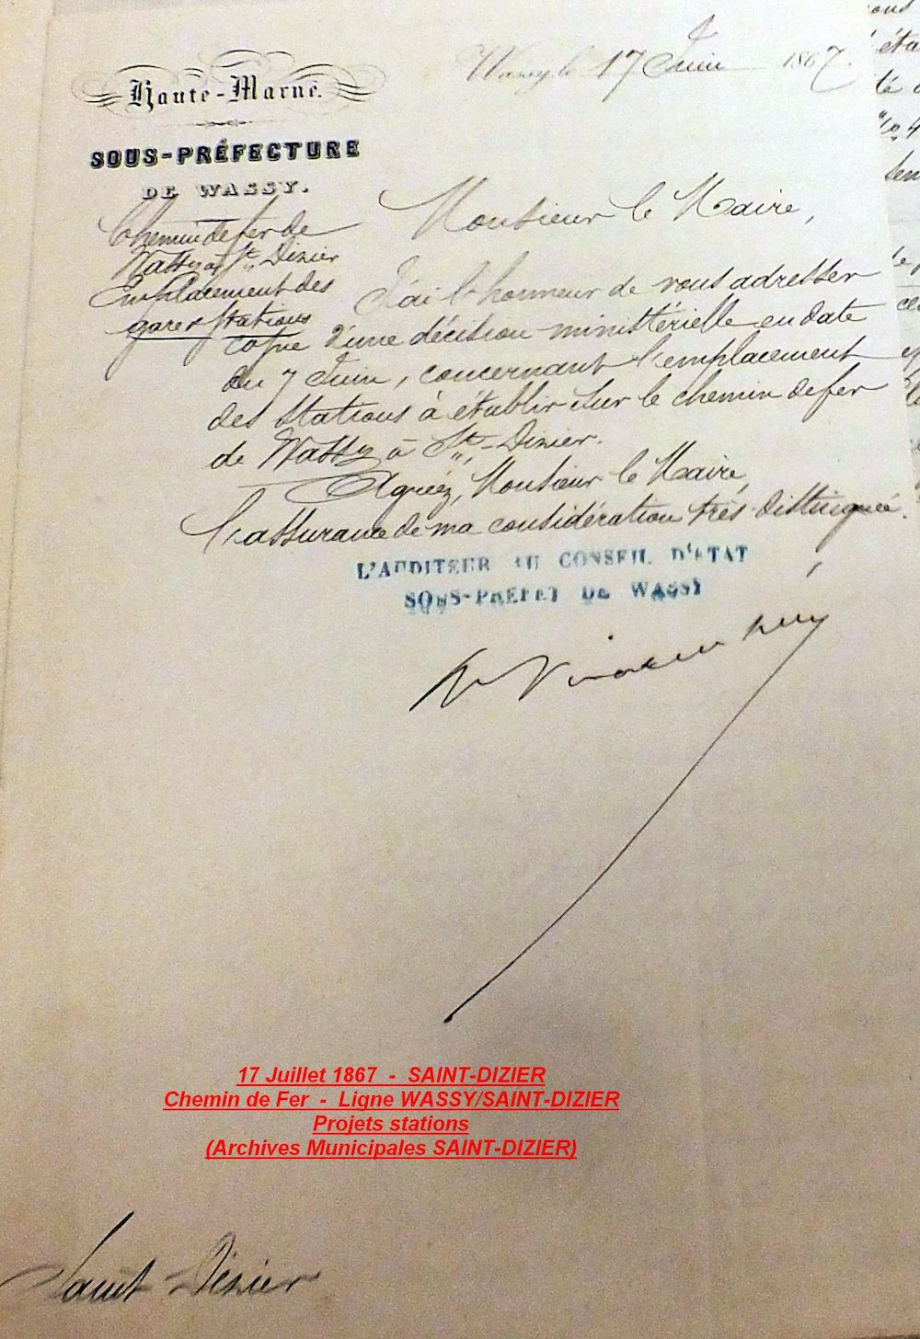 Haute-Marne.
SOUS-PRÉFECTURE
DE WASSY.
Wassy, le 17 Juin 1867.
Chemin de fer de
Wassy à St. Dizier
Emplacement des
gares stations
Monsieur le Maire,
J'ai l'honneur de vous adresser
copie d'une décision ministérielle en date
du 7 Juin, concernant l'emplacement
des stations à établir sur le chemin de fer
de Wassy à St.-Dizier.
Agréez, Monsieur le Maire,
l'assurance de ma considération très-distinguée.
L'AUDITEUR AU CONSEIL D'ETAT
SOUS-PREFET DE WASSY
17 Juillet 1867 - SAINT-DIZIER
Chemin de Fer - Ligne WASSY/SAINT-DIZIER
Projets stations
(Archives Municipales SAINT-DIZIER)
Saint Dizier